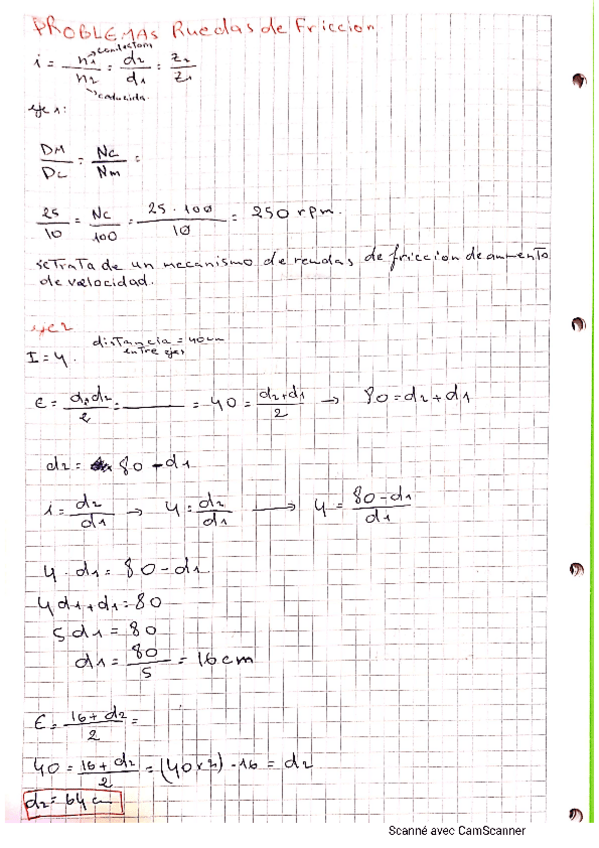 PROBLEMAS Ruedas de Friccion
i = n1/n2 = d2/d1 = z2/z1
→conductora
→conducida
eje1:
DM/DC = NC/Nm =
25/10 = NC/100 = 25 · 100/10 = 250 rpm.
se trata de un mecanismo de reudas de friccion de aumento
de velocidad.
eje2
distancia = 40cm
entre ejes
I = 4.
E = d1,d2/2 = ——— = 40 = d2+d1/2 → 80 = d2+d1
d2 = 80 - d1
i = d2/d1 → 4 = d2/d1 → 4 = 80-d1/d1
4 · d1 = 80 - d1
4d1+d1 = 80
5d1 = 80
d1 = 80/5 = 16cm
E = 16+d2/2 =
40 = 16+d2/2 = (40x2) - 16 = d2
d2 = 64 cm
Scanné avec CamScanner